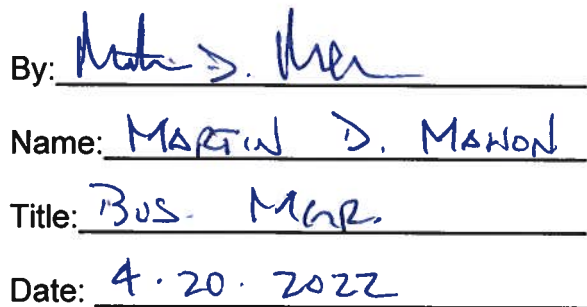 By:
Name: MARTIN D. MAHON
Title: BUS. MGR.
Date: 4.20.2022